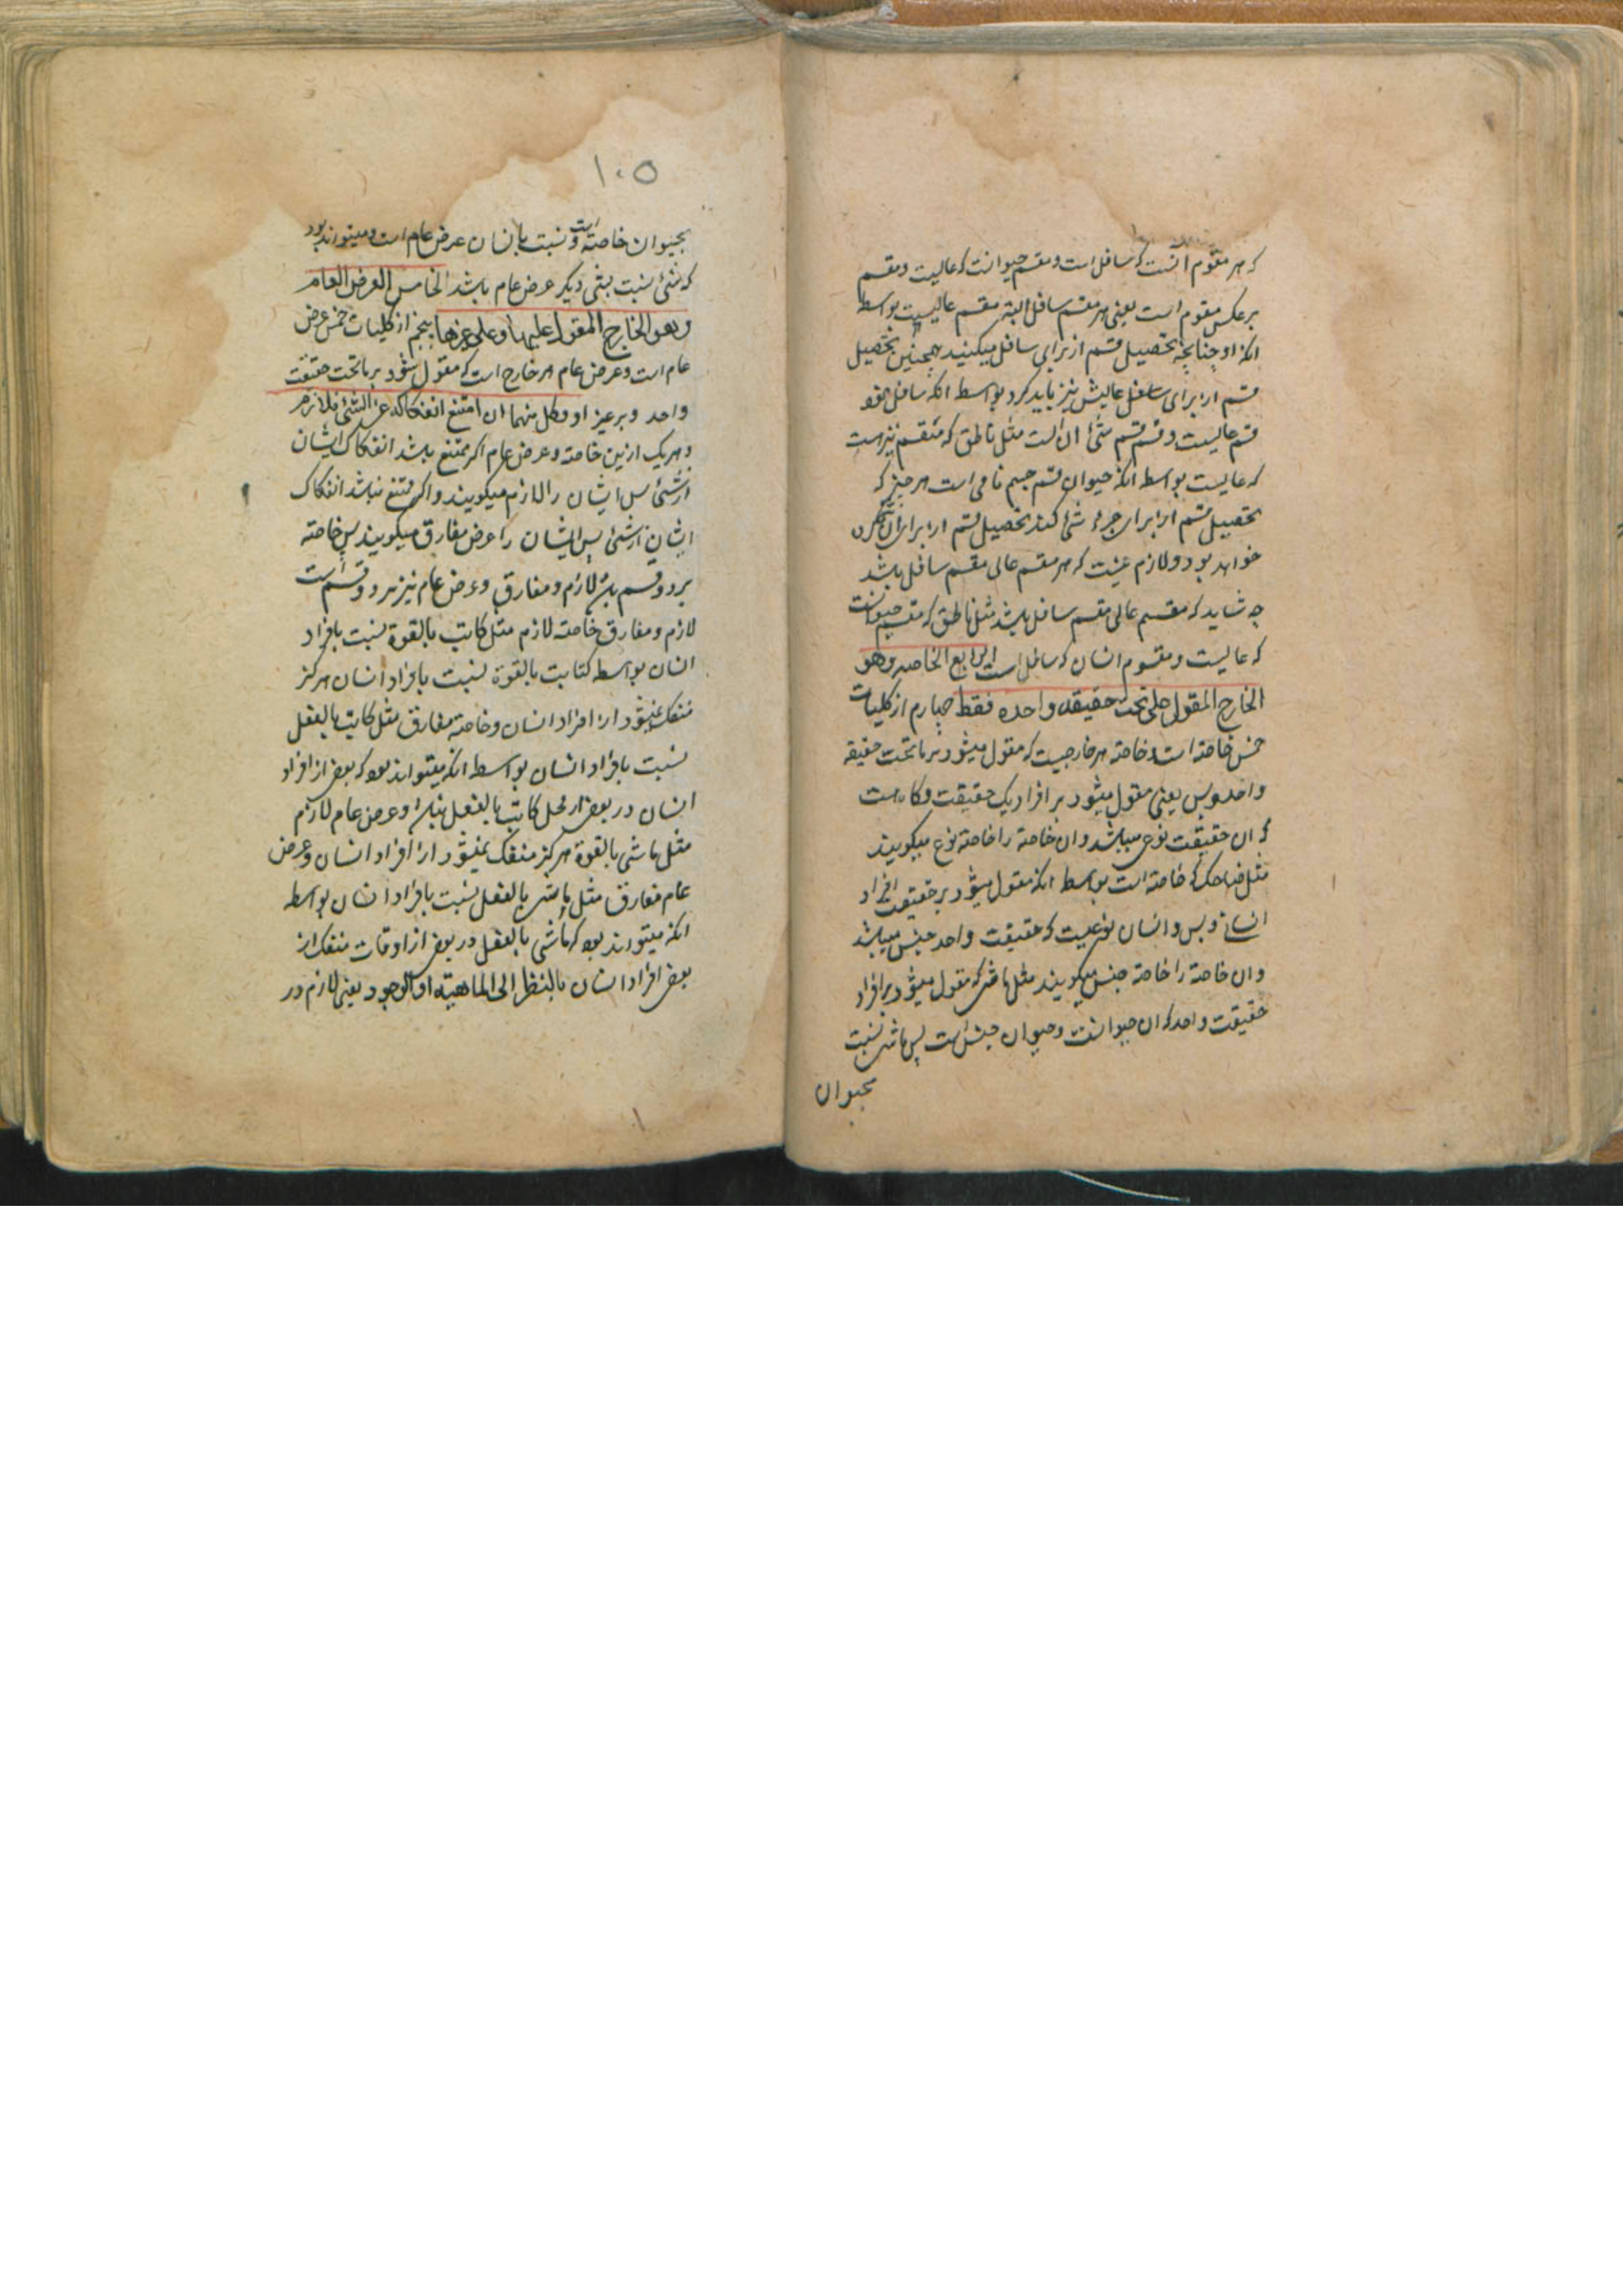 که هر مقوم انست که سافل است و مقسم حیوانست که عالیست و مقسم
بر عکس مقوم است یعنی هر مقسم سافل البته مقسم عالیست بواسطه
انکه او چنانچه تحصیل قسم از برای سافل میکنید همچنین تحصیل
قسم از برای سافل عالیش نیز باید کرد بواسطه انکه سافل
قسم عالیست و قسم قسم شئ قسم ان است مثل ناطق که مقسم نیز است
که عالیست بواسطه انکه حیوان قسم جسم نامی است هر چیز که
تحصیل قسم از برای جزء شئ کند تحصیل قسم از برای ان
خواهد بود و لازم نیست که هر مقسم عالی مقسم سافل باشد
چه شاید که مقسم عالی مقسم سافل باشد مثل ناطق که مقسم حیوانست
که عالیست و مقوم انسان که سافل است الرابع الخاصه وهو
الخارج المقول علی ما تحت حقیقه واحده فقط چهارم از کلیات
خمس خاصه است و خاصه هر خارجیست که مقول میشود بر ما تحت حقیقه
واحد و بس یعنی مقول میشود بر افراد یک حقیقت و کاه هست
که ان حقیقت نوع میباشد و ان خاصه را خاصه نوع میکویند
مثل ضاحک که خاصه است بواسطه انکه مقول میشود بر حقیقت افراد
انسانی و بس و انسان نوعیست که حقیقت واحد جنس میباشد
و ان خاصه را خاصه جنس میکویند مثل ماشی که مقول میشود بر افراد
حقیقت واحد که ان حیوانست و حیوان جنس است پس ماشی نسبت
بحیوان
١٠٥
بحیوان خاصه است و نسبت بانسان عرض عام است و میتواند بود
که شئ نسبت بشی دیکر عرض عام باشد الخامس العرض العام
وهو الخارج المقول علیها وعلی غیرها پنجم از کلیات خمس عرض
عام است و عرض عام هر خارج است که مقول شود بر ما تحت حقیقت
واحد و بر غیر او وکل منهما ان امتنع انفکاکه عن الشئ فلازم
و هر یک ازین خاصه و عرض عام اکر ممتنع باشد انفکاک ایشان
از شئ پس ایشان را لازم میکویند و اکر ممتنع نباشد انفکاک
ایشان از شئ پس ایشان را عرض مفارق میکویند پس خاصه
بر دو قسم باشد لازم و مفارق و عرض عام نیز بر دو قسم است
لازم و مفارق خاصه لازم مثل کاتب بالقوة نسبت بافراد
انسان بواسطه کتابت بالقوة نسبت بافراد انسان هرکز
منفک نمیشود از افراد انسان و خاصه مفارق مثل کاتب بالفعل
نسبت بافراد انسان بواسطه انکه میتواند بود که بعض از افراد
انسان در بعض از محل کاتب بالفعل نباشد و عرض عام لازم
مثل ماشی بالقوة هرکز منفک نمیشود از افراد انسان و عرض
عام مفارق مثل ماشی بالفعل نسبت بافراد انسان بواسطه
انکه میتواند بود که ماشی بالفعل در بعض از اوقات منفک از
بعض افراد انسان بالنظر الی الماهیة او الوجود یعنی لازم در